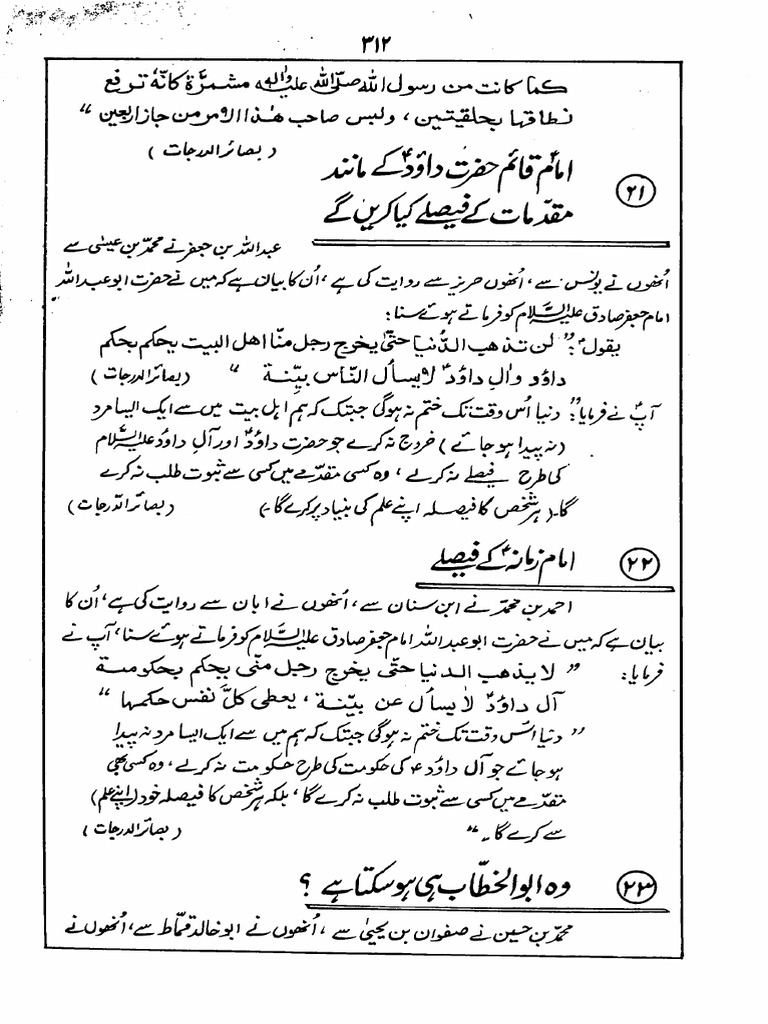 ۳۱۲
کما کانت من رسول اللہ صلّی اللہ علیہ وآلہ مشمرَّۃ کانّہٗ ترفع
نطاقھا بحلقیتین ، ولیس صاحب ھٰذا الامر من جاز اربعین “
( بصائر الدرجات )
۲۱
امام قائم حضرت داؤدؑ کے مانند
مقدّمات کے فیصلے کیا کریں گے
عبد اللہ بن جعفر نے محمّد بن عیسیٰ سے
اُنھوں نے یونس سے ، اُنھوں حریز سے روایت کی ہے ، اُن کا بیان ہے کہ میں نے حضرت ابو عبد اللہ
امام جعفر صادق علیہ السَّلام کو فرماتے ہوئے سنا :
یقولؑ : ” لن تذھب الدُّنیا حتّیٰ یخرج رجل منّا اھل البیت یحکم بحکم
داؤد واٰلِ داؤدؑ لا یسأل النّاس بیّنة “ ( بصائر الدرجات )
آپؑ نے فرمایا : ” دنیا اُس وقت تک ختم نہ ہوگی جبتک کہ ہم اہل بیت میں سے ایک ایسا مرد
( نہ پیدا ہو جائے ) خروج نہ کرے جو حضرت داؤدؑ اور آلِ داؤد علیہ السَّلام
کی طرح فیصلے نہ کرلے ، وہ کسی مقدّمے میں کسی سے ثبوت طلب نہ کرے
گا۔ ( ہر شخص کا فیصلہ اپنے علم کی بنیاد پر کرے گا۔) ( بصائر الدّرجات )
۲۲
امام زمانہؑ کے فیصلے
احمد بن محمّد نے ابن سنان سے ، اُنھوں نے ابان سے روایت کی ہے ، اُن کا
بیان ہے کہ میں نے حضرت ابو عبد اللہ امام جعفر صادق علیہ السَّلام کو فرماتے ہوئے سنا ، آپ نے
فرمایا : ” لا یذھب الدنیا حتّیٰ یخرج رجل منّی یحکم بحکومة
آل داؤدؑ لا یسأل عن بیّنة ، یعطی کلَّ نفس حکمھا “
” دنیا اُس وقت تک ختم نہ ہوگی جبتک کہ ہم میں سے ایک ایسا مرد نہ پیدا
ہو جائے جو آل داؤدؑ کی حکومت کی طرح حکومت نہ کرلے ، وہ کسی بھی
مقدّمے میں کسی سے ثبوت طلب نہ کرے گا ، بلکہ ہر شخص کا فیصلہ خود ( اپنے علم )
سے کرے گا ۔ “ ( بصائر الدرجات )
۲۳
وہ ابوالخطّاب ہی ہو سکتا ہے ؟
محمّد بن حسین نے صفوان بن یحییٰ سے ، اُنھوں نے ابو خالد قمّاط سے ، اُنھوں نے